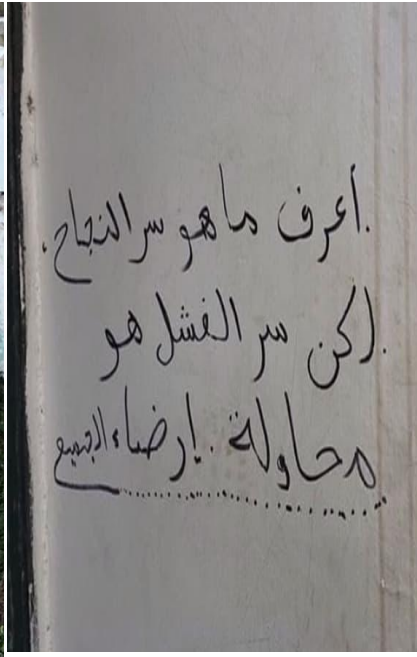 .أعرف ما هو سر النجاح.
.لكن سر الفشل هو
محاولة .إرضاء الجميع